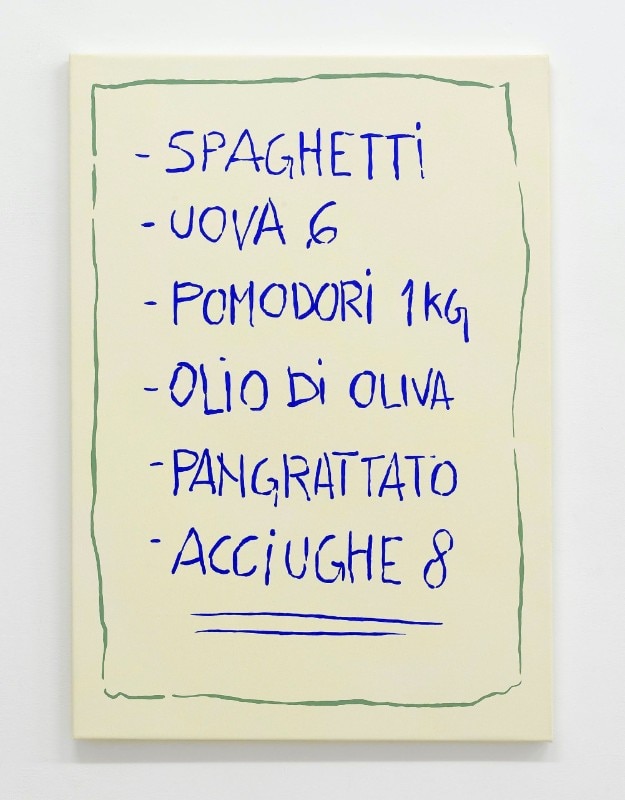 - SPAGHETTi
- UOVA 6
- POMODORi 1KG
- OLiO Di OLIVA
- PANGRATTATO
- ACCiUGHE 8